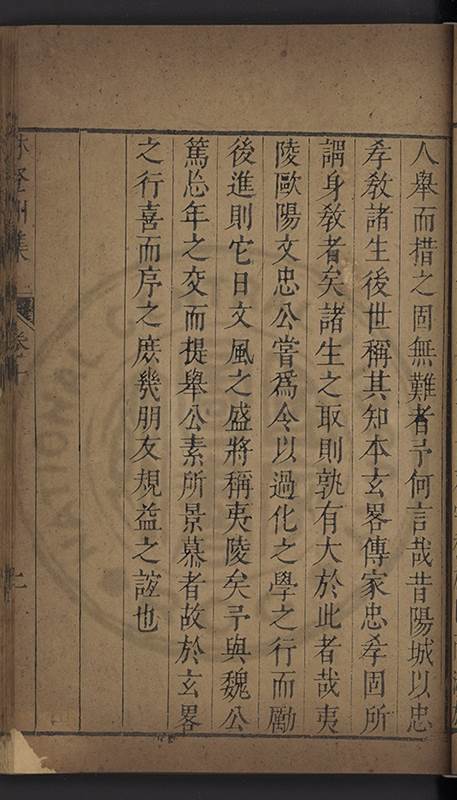 人舉而措之固無難者予何言哉昔陽城以忠
孝敎諸生後世稱其知本玄畧傳家忠孝固所
謂身敎者矣諸生之取則孰有大於此者哉夷
陵歐陽文忠公嘗爲令以過化之學之行而勵
後進則它日文風之盛將稱夷陵矣予與魏公
篤忘年之交而提舉公素所景慕者故於玄畧
之行喜而序之庶幾朋友規益之誼也
集 卷